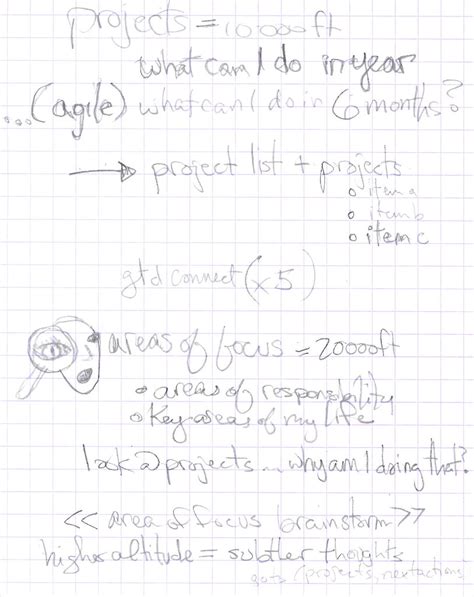 projects = 10000ft
what can I do in year
...(agile) what can I do in 6 months?
→ project list + projects
o item a
o item b
o item c
gtd connect (x5)
areas of focus = 20000ft
o areas of responsibility
o Key areas of my life
look @ projects ... why am I doing that?
<< area of focus brainstorm >>
higher altitude = subtler thoughts
(projects, nextactions